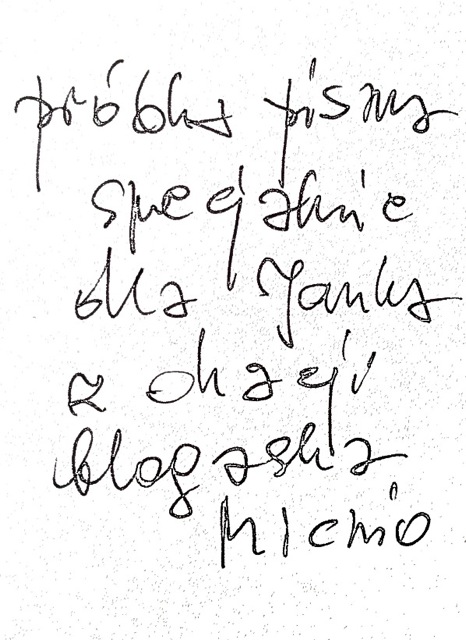 próbka pisma
specjalnie
dla Janka
z okazji
blogaska
Miemio